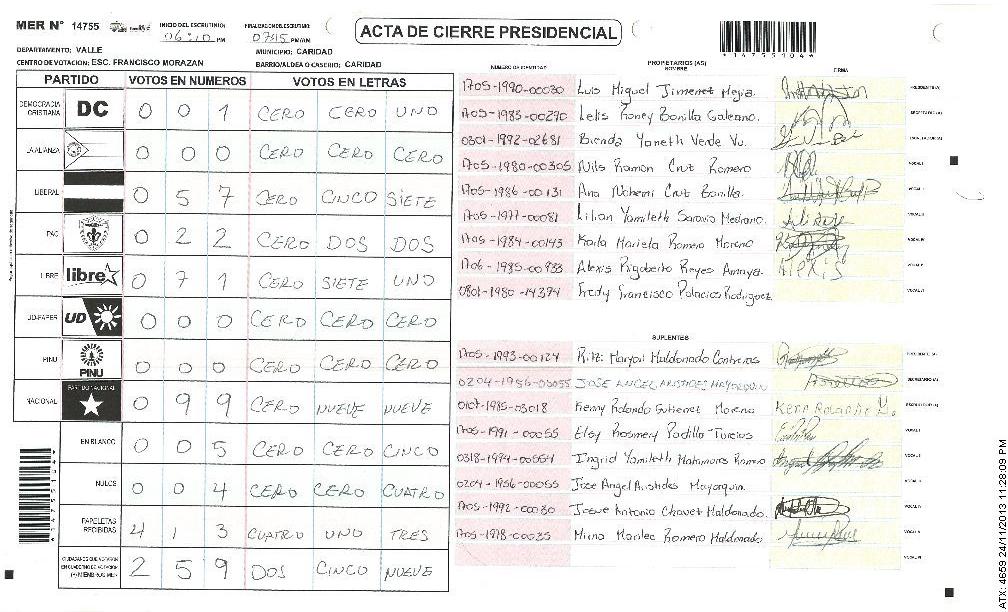 MER N° 14755
INICIO DEL ESCRUTINIO:
06:10 PM
FINALIZACION DEL ESCRUTINIO:
07:45 PM/AM
ACTA DE CIERRE PRESIDENCIAL
DEPARTAMENTO: VALLE
MUNICIPIO: CARIDAD
CENTRO DE VOTACION: ESC. FRANCISCO MORAZAN
BARRIO/ALDEA O CASERIO: CARIDAD
PARTIDO VOTOS EN NUMEROS VOTOS EN LETRAS
DEMOCRACIA CRISTIANA DC 0 0 1 CERO CERO UNO
LA ALIANZA 0 0 0 CERO CERO CERO
LIBERAL 0 5 7 CERO CINCO SIETE
PAC 0 2 2 CERO DOS DOS
LIBRE libre 0 7 1 CERO SIETE UNO
UD-FAPER UD 0 0 0 CERO CERO CERO
PINU PINU 0 0 0 CERO CERO CERO
NACIONAL PARTIDO NACIONAL 0 9 9 CERO NUEVE NUEVE
EN BLANCO 0 0 5 CERO CERO CINCO
NULOS 0 0 4 CERO CERO CUATRO
PAPELETAS RECIBIDAS 4 1 3 CUATRO UNO TRES
CIUDADANOS QUE VOTARON EN CUADERNO DE VOTACION (+) MIEMBROS MER 2 5 9 DOS CINCO NUEVE
NUMERO DE IDENTIDAD PROPIETARIOS (AS) NOMBRE FIRMA
1705-1990-00030 Luis Miguel Jimenez Mejia. PRESIDENTE (A)
1705-1983-00290 Lelis Roney Bonilla Galeano. SECRETARIO (A)
0301-1992-02681 Brenda Yaneth Verde Vu. ESCRUTADOR (A)
1705-1980-00305 Nils Ramon Cruz Romero VOCAL I
1705-1986-00131 Ana Nohemi Cruz Bonilla. VOCAL II
1705-1977-00081 Lilian Yamileth Saravia Medrano. VOCAL III
1705-1984-00143 Karla Mariela Romero Moreno VOCAL IV
1706-1985-00933 Alexis Rigoberto Reyes Amaya. Alexis VOCAL V
0801-1980-14374 Fredy Francisco Palacios Rodriguez VOCAL VI
SUPLENTES
1705-1993-00124 Ritzi Maryori Maldonado Contreras PRESIDENTE (A)
0204-1956-00055 JOSE ANGEL ARISTIDES MAYORQUIN SECRETARIO (A)
0107-1985-03018 Kenny Rolando Gutierrez Moreno ESCRUTADOR (A)
1705-1991-00055 Elsy Rosmery Padilla Turcios VOCAL I
0318-1994-00564 Ingrid Yamileth Matamoros Romero VOCAL II
0204-1956-00055 Jose Angel Aristides Mayorquin. VOCAL III
1705-1992-00030 Josue Antonio Chavez Maldonado. VOCAL IV
1705-1978-00035 Mirna Marilec Romero Maldonado VOCAL V
VOCAL VI
ATX: 4659 24/11/2013 11:28:09 PM